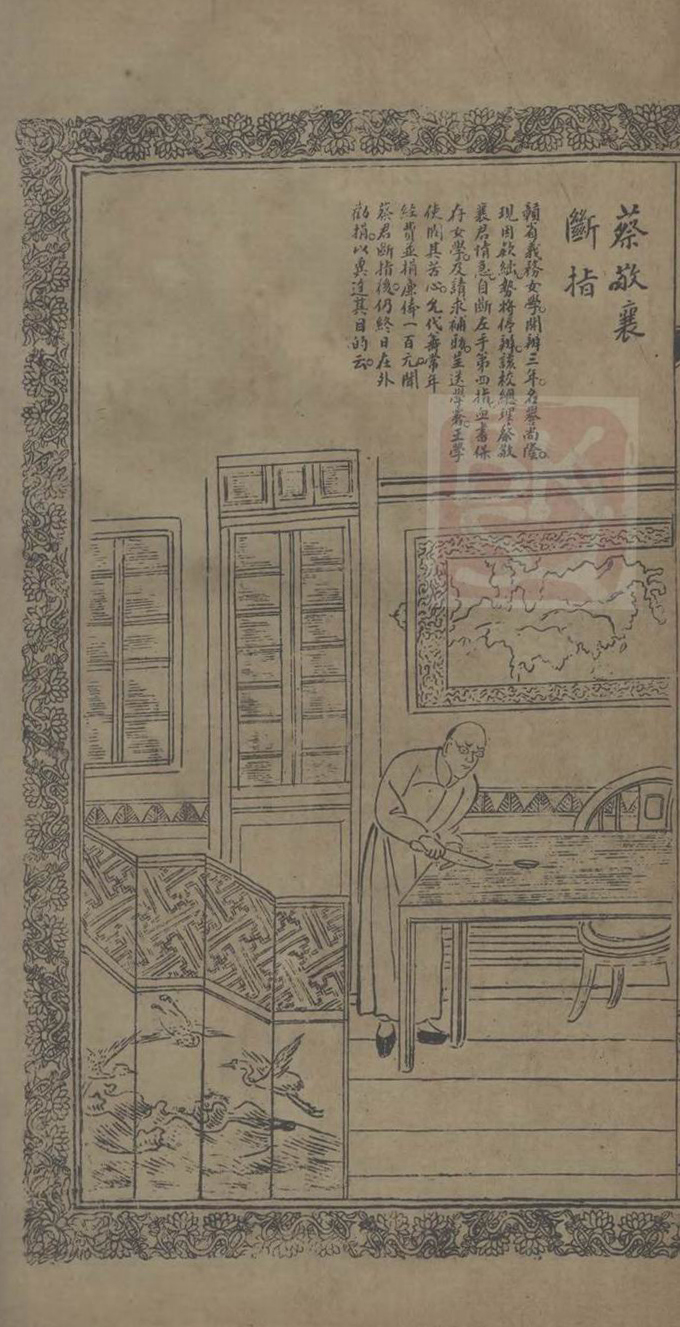 蔡敬襄
斷指
贛省義務女學開辦三年名譽尚隆
現因款絀勢將停辦該校總理蔡敬
襄君情急自斷左手第四指血書保
存女學及請求補助呈送學憲王學
使閔其苦心允代籌常年
經費並捐廉俸一百元聞
蔡君斷指後仍終日在外
勸捐以冀達其目的云